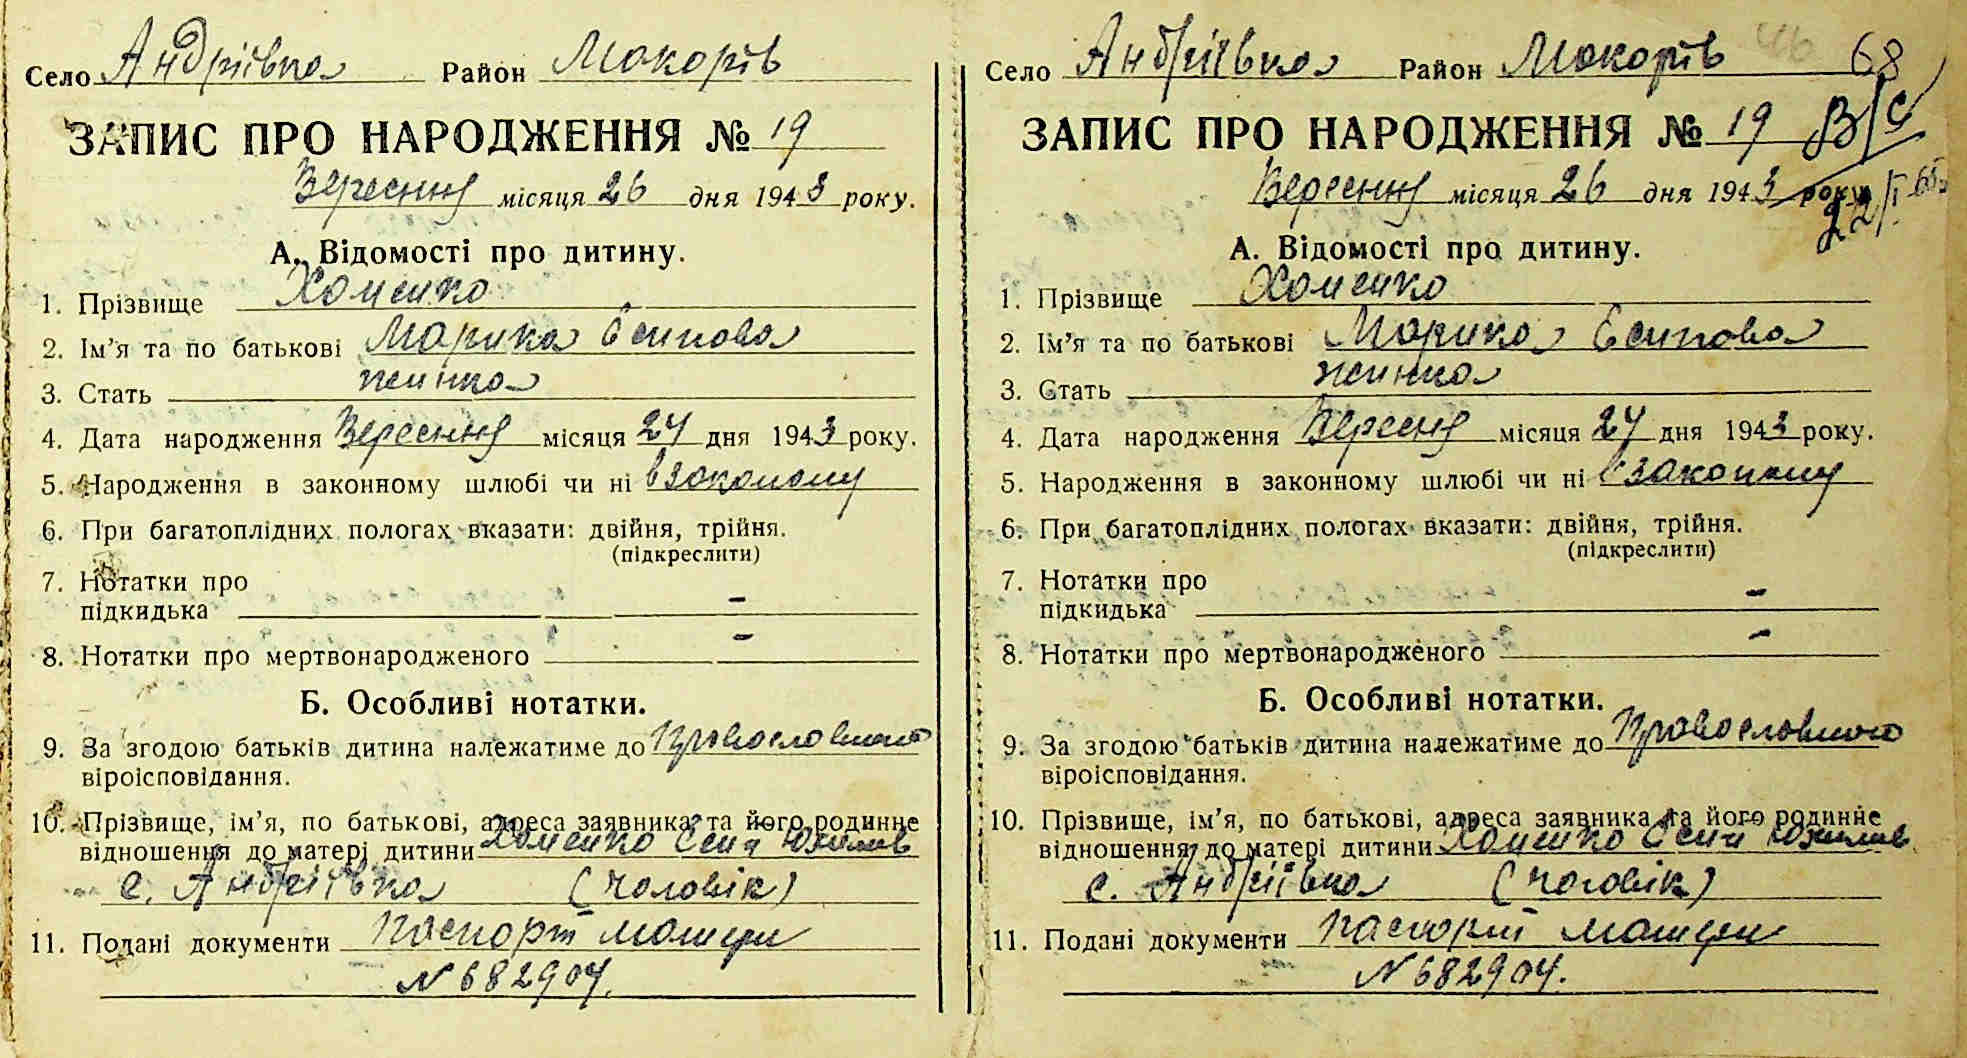 Село Андріївка Район Макорів
ЗАПИС ПРО НАРОДЖЕННЯ № 19
Вересння місяця 26 дня 1943 року.
А. Відомості про дитину.
1. Прізвище Хоменко
2. Ім'я та по батькові Марика Єсипова
3. Стать жінка
4. Дата народження Вересння місяця 24 дня 1943 року.
5. Народження в законному шлюбі чи ні в законому
6. При багатоплідних пологах вказати: двійня, трійня.
(підкреслити)
7. Нотатки про
підкидька –
8. Нотатки про мертвонародженого –
Б. Особливі нотатки.
9. За згодою батьків дитина належатиме до Православного
віроісповідання.
10. Прізвище, ім'я, по батькові, адреса заявника та його родинне
відношення до матері дитини Хоменко Єсип
с. Андріївка (чоловік)
11. Подані документи Паспорт матери
N 682904.
Село Андріївка Район Макорів 68
ЗАПИС ПРО НАРОДЖЕННЯ № 19 В/С
Вересння місяця 26 дня 1943 року
А. Відомості про дитину.
1. Прізвище Хоменко
2. Ім'я та по батькові Марика Єсипова
3. Стать жинка
4. Дата народження Вересня місяця 24 дня 1943 року.
5. Народження в законному шлюбі чи ні в законому
6. При багатоплідних пологах вказати: двійня, трійня.
(підкреслити)
7. Нотатки про
підкидька –
8. Нотатки про мертвонародженого –
Б. Особливі нотатки.
9. За згодою батьків дитина належатиме до Православного
віроісповідання.
10. Прізвище, ім'я, по батькові, адреса заявника та його родинне
відношення до матері дитини Хоменко Єсип
с. Андріївка (чоловік)
11. Подані документи паспорт матери
N 682904.